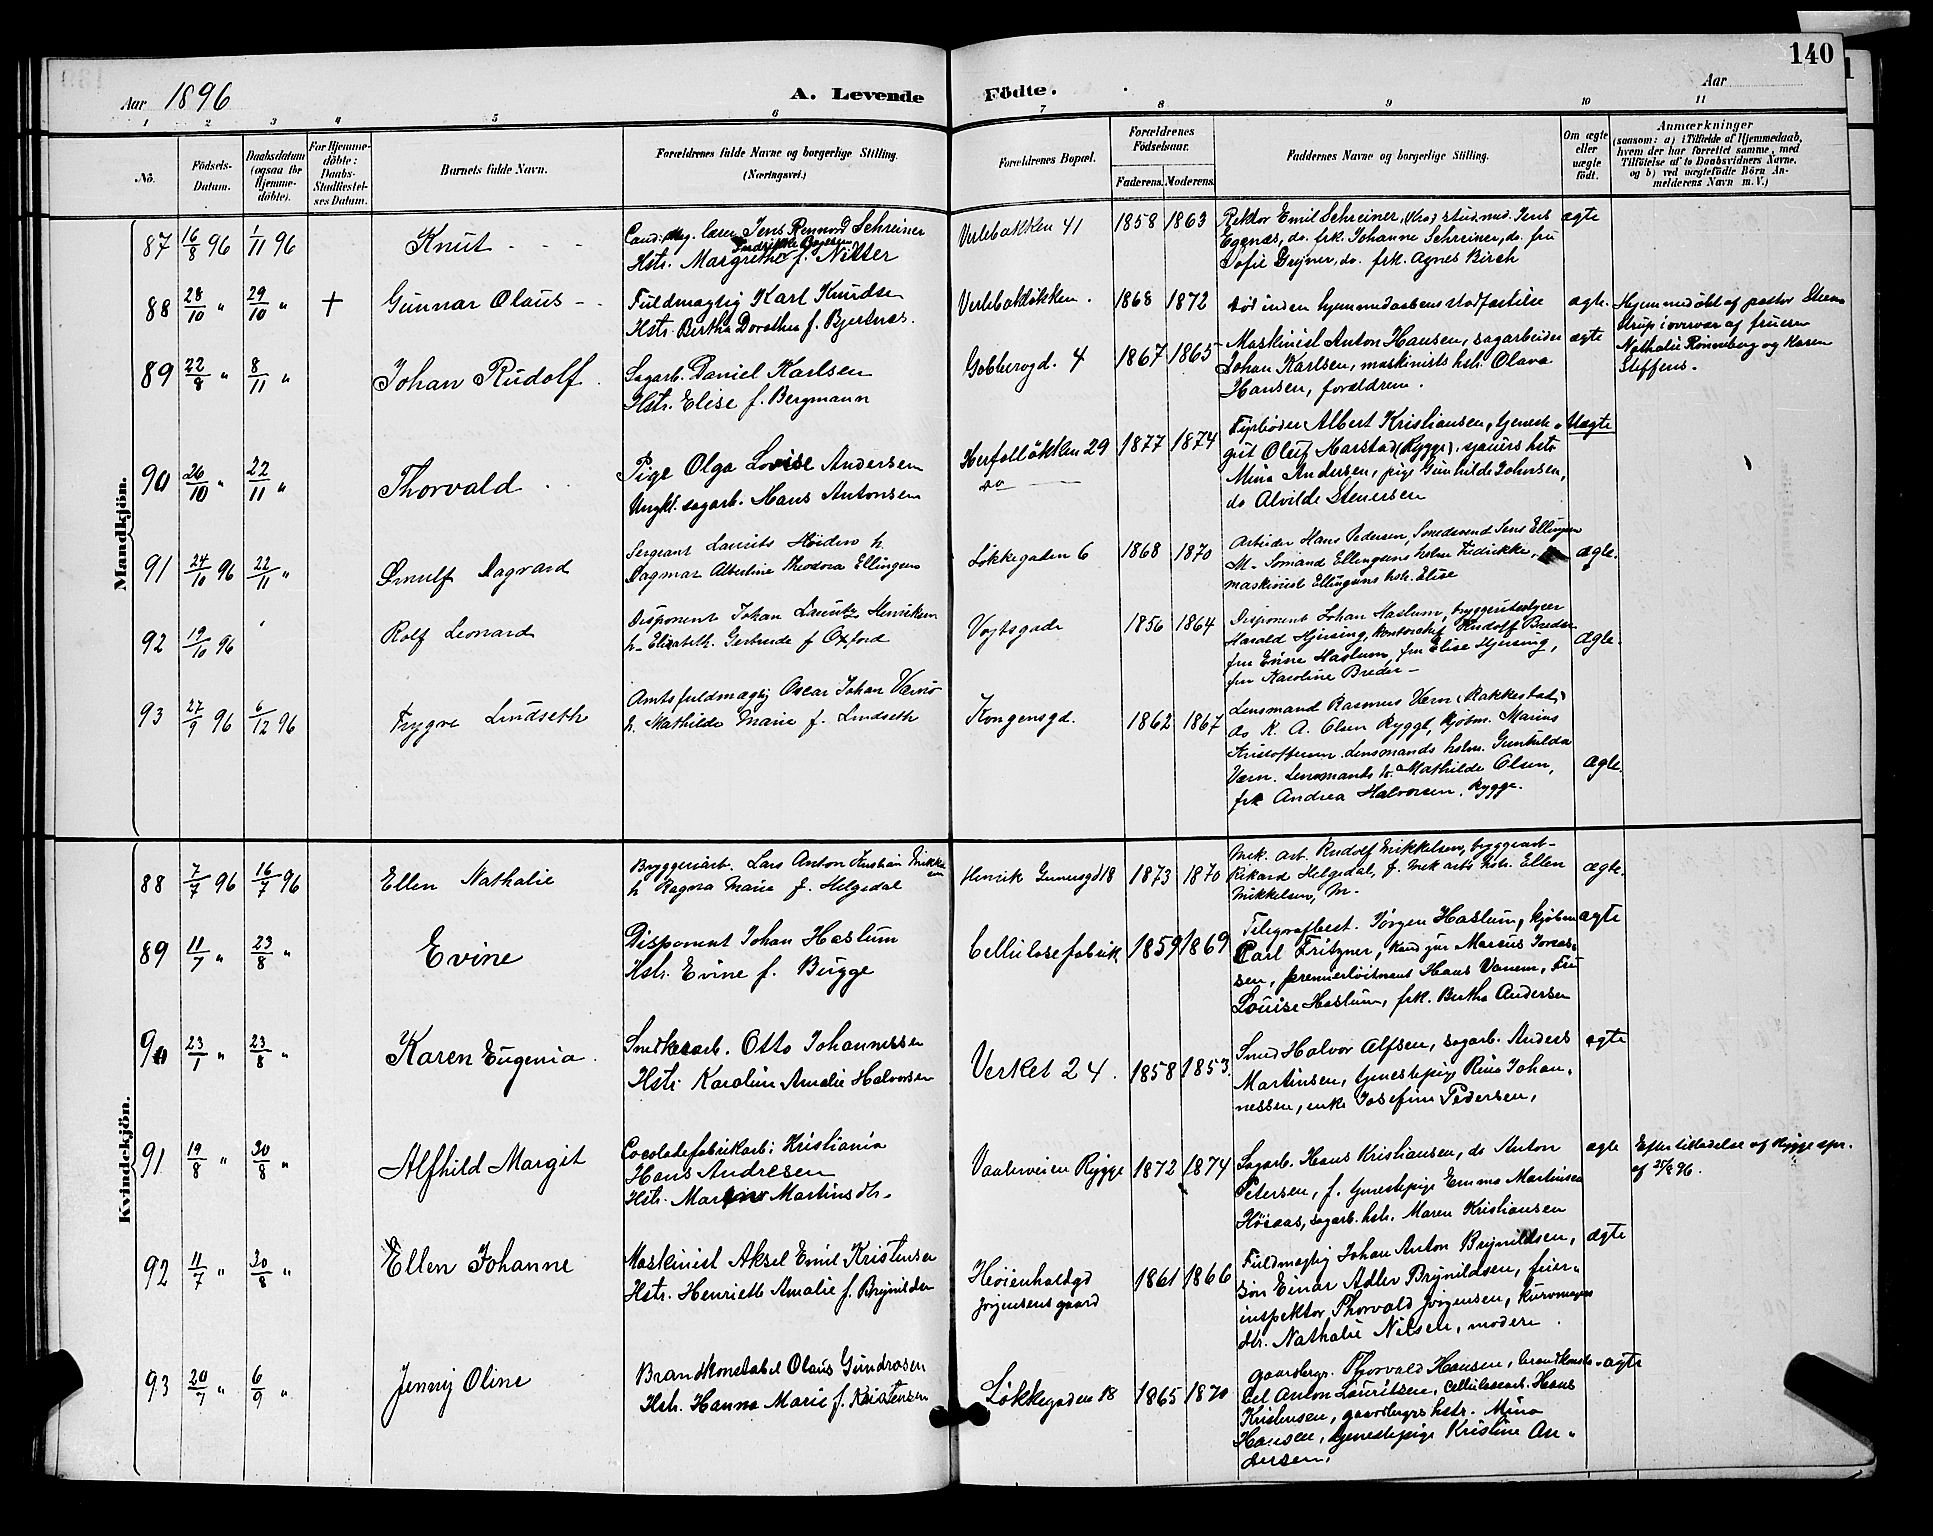 140
Aar 1896
A. Levende
Födte.
Aar
1 2 3 4 5 6 7 8 9 10 11
No.
Födsels-Datum.
Daabsdatum (ogsaa for Hjemme-döbte).
For Hjemme-döbte: Daabs-Stadfæstel-ses Datum.
Barnets fulde Navn.
Forældrenes fulde Navne og borgerlige Stilling. (Næringsvei.)
Forældrenes Bopæl.
Forældrenes Födselsaar.
Faderens. Moderens.
Faddernes Navne og borgerlige Stilling.
Om ægte eller uægte födt.
Anmærkninger
(saasom: a) i Tilfælde af Hjemmedaab, hvem der har forrettet samme, med Tilföielse af to Daabsvidners Navne, og b) ved uægtefödte Börn An-melderens Navn m. V.)
Mandkjön.
87 16/8 96 1/11 96 Knut
Cand. mag. lærer Jens Schreiner
Hstr. Margrethe Fredrikke f. Nitter
Verlebakken 41 1858 1863
Rektor Emil Schreiner, stud. med. Jens
Egenæs, do. frk. Johanne Schreiner, do. fru
Sofie Greyner, do. frk. Agnes Birch
ægte
88 28/10 " 29/10 " + Gunnar Olaus
Fuldmægtig Karl Knudsen
Hstr. Bertha Dorothea f. Bjertnæs.
Verlebakken. 1868 1872
død inden hjemmedaabens stadfæstelse
ægte.
Hjemmedöbt af pastor Steens
trup i overvær af fruerne
Nathalie Rönneberg og Karen
Steffens.
89 22/8 " 8/11 " Johan Rudolf
Sagarb. Daniel Karlsen
Hstr. Elise f. Bergmann
Goblerogd. 4 1867 1865
Maskinist Anton Hansen, sagarbeider
Johan Karlsen, maskinists hstr. Olava
Hansen, forældrene.
ægte
90 26/10 " 22/11 " Thorvald
Pige Olga Lovise Andersen
Ungkl. sagarb. Hans Antonsen
Herfölløkken 29
do
1877 1874
Fyrböder Albert Kristiansen, tjeneste-
gut Oluf Marstad (Rygge), hstr.
Mina Andersen, pige Gunhilde Johnsen,
do Alvilde Stenersen
Uægte
91 24/10 96 22/11 " Ørnulf Dagvard
Sergeant Laurits Höiden h.
Dagmar Albertine Theodora Ellingsen
Løkkegaden 6 1868 1870
Arbeider Hans Pedersen, Smedsvend Jens Ellingsen
M- Sömand Ellingsens hstr Fredrikke,
maskinist Ellingsens hstr. Elise
ægte.
92 19/10 96 Rolf Leonard
Disponent Johan Lauritz Henriksen
h- Elizabeth Gertrude f Oxford
Vogtsgade 1856 1864
Disponent Johan Haslum, bryggeribestyrer
Harald Hjersing, kontorchef Rudolf Breder
fru Evine Haslum, fru Elise Hjersing,
fru Karoline Breder -
ægte.
93 27/9 96 6/12 96 Trygve Lindseth
Amtsfuldmægtig Oscar Johan Værnø
h. Mathilde Marie f. Lindseth
Kongensgd. 1862 1867
Lensmand Rasmus Værn (Rakkestad)
do K. A. Olsen Rygge, kjöbm. Marius
Kristoffersen. Lensmands hstr. Gunhilda
Værn. Lensmands h. Mathilde Olsen,
frk Andrea Halvorsen, Rygge.
ægte.
Kvindekjön.
88 7/7 96 16/7 96 Ellen Nathalie
Bryggeriarb. Lars Anton Kristian Mikkelsen
h Ragna Marie f. Helgedal
Henrik Gernersgd 18 1873 1870
Mek. arb. Rudolf Mikkelsen, bryggeriarb-
Rikard Helgedal, f. Mek arb's hstr. Ellen
Mikkelsen, M.
ægte.
89 11/7 " 23/8 " Evine
Disponent Johan Haslum
Hstr. Evine f. Bugge
Cellulosefabrik 1859 1869
Telegrafbest. Jörgen Haslum, kjöbm
Carl Fritzner, kand jur Marcus
sen, premierlöitnant Hans Vanem, Fru
Louise Haslum, frk. Bertha Andersen
ægte
90 23/1 " 23/8 " Karen Eugenia
Snedkerarb. Otto Johannessen
Hstr. Karoline Amalie Halvorsen
Verket 24. 1858 1853.
Smed Halvor Alfsen, sagarb. Anders
Martinsen, tjenestepige Rina Johan-
nessen, enke Josefine Pedersen,
ægte
91 19/8 " 30/8 " Alfhild Margit
Cocoladefabrikarb. i Kristiania
Hans Andresen
Hstr. Martinsdtr.
Vaalerveien Rygge 1872 1874
Sagarb. Hans Kristiansen, do Anton
Petersen, f. tjenestepige Emma Martinsen
Höiaas, sagarb. hstr. Maren Kristiansen
ægte
Efter tilladelse af Rygge spr.
af 25/8 96.
92 11/7 " 30/8 " Ellen Johanne
Maskinist Aksel Emil Kristensen
Hstr. Henriette Amalie f. Brynildsen
Höienhaldgd
Jörgensens gaard
1861 1866
Fuldmægtig Johan Anton Brynildsen,
Einar Adler Brynildsen, feier-
inspektor Thorvald Jörgensen, kurvmagers
str. Nathalie Nilsen, modere.
ægte
93 20/7 " 6/9 " Jenny Oline
Brandkonstabel Olaus Gundrosen
Hstr. Hanna Marie f. Kristensen
Løkkegaden 18 1865 1870
gaardbrgr. Thorvald Hansen, brandkonsta-
bel Anton Lauritsen, cellulosearb. Hans
Kristensen, gaardbrgrs hstr. Mina
Hansen, tjenestepige Kristine An-
dersen.
ægte